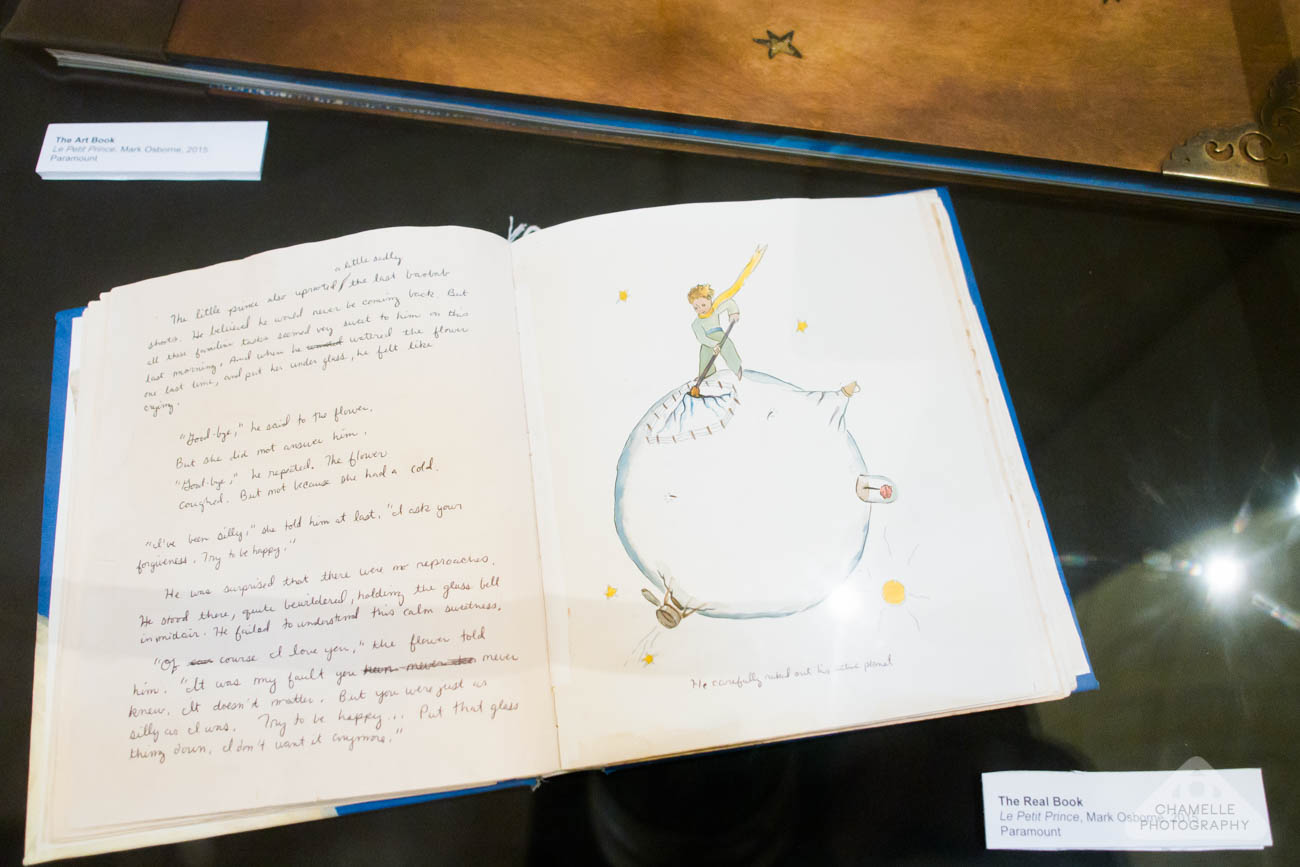 The Art Book
Le Petit Prince, Mark Osborne, 2015
Paramount
a little sadly
The little prince also uprooted the last baobab
shoots. He believed he would never be coming back. But
all these familiar tasks seemed very sweet to him on this
last morning. And when he watered the flower
one last time, and put her under glass, he felt like
crying.
"Good-bye," he said to the flower.
But she did not answer him.
"Good-bye," he repeated. The flower
coughed. But not because she had a cold.
"I've been silly," she told him at last. "I ask your
forgiveness. Try to be happy."
He was surprised that there were no reproaches.
He stood there, quite bewildered, holding the glass bell
in midair. He failed to understand this calm sweetness.
"Of course I love you," the flower told
him. "It was my fault you never
knew. It doesn't matter. But you were just as
silly as I was. Try to be happy... Put that glass
thing down, I don't want it anymore."
He carefully raked out his planet
The Real Book
Le Petit Prince, Mark Osborne, 2015
Paramount
CHAMELLE
PHOTOGRAPHY